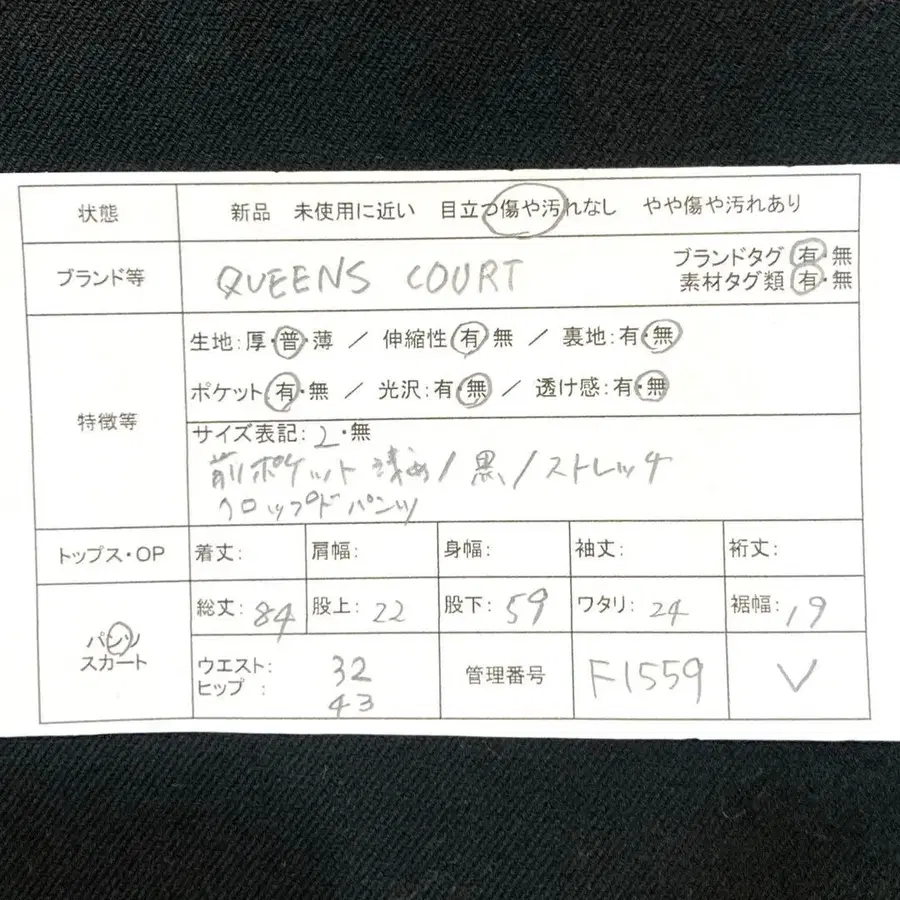 状態 新品 未使用に近い 目立つ傷や汚れなし やや傷や汚れあり
ブランド等 QUEENS COURT ブランドタグ 有・無
素材タグ類 有・無
特徴等 生地:厚・普・薄 / 伸縮性 有・無 / 裏地:有・無
ポケット 有・無 / 光沢:有・無 / 透け感:有・無
サイズ表記: 2・無
前ポケット 浅め/黒/ストレッチ
クロップドパンツ
トップス・OP 着丈: 肩幅: 身幅: 袖丈: 裄丈:
パンツ 総丈: 84 股上: 22 股下: 59 ワタリ: 24 裾幅: 19
スカート
ウエスト: 32 管理番号 F1559 V
ヒップ : 43